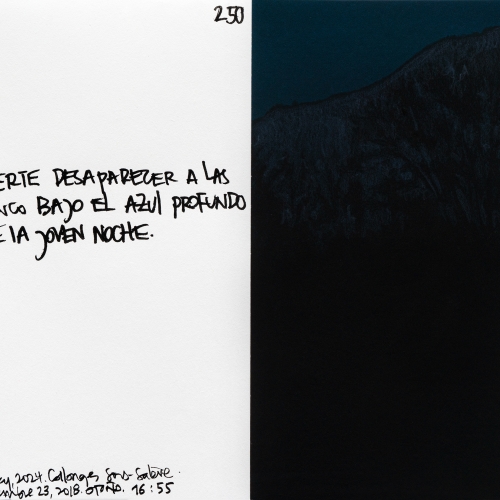 250
ERTE DESAPARECER A LAS
NCO BAJO EL AZUL PROFUNDO
E LA JOVEN NOCHE.
ey, 2024. Collonges Sous-Salève.
embre 23, 2018. OTOÑO. 16:55